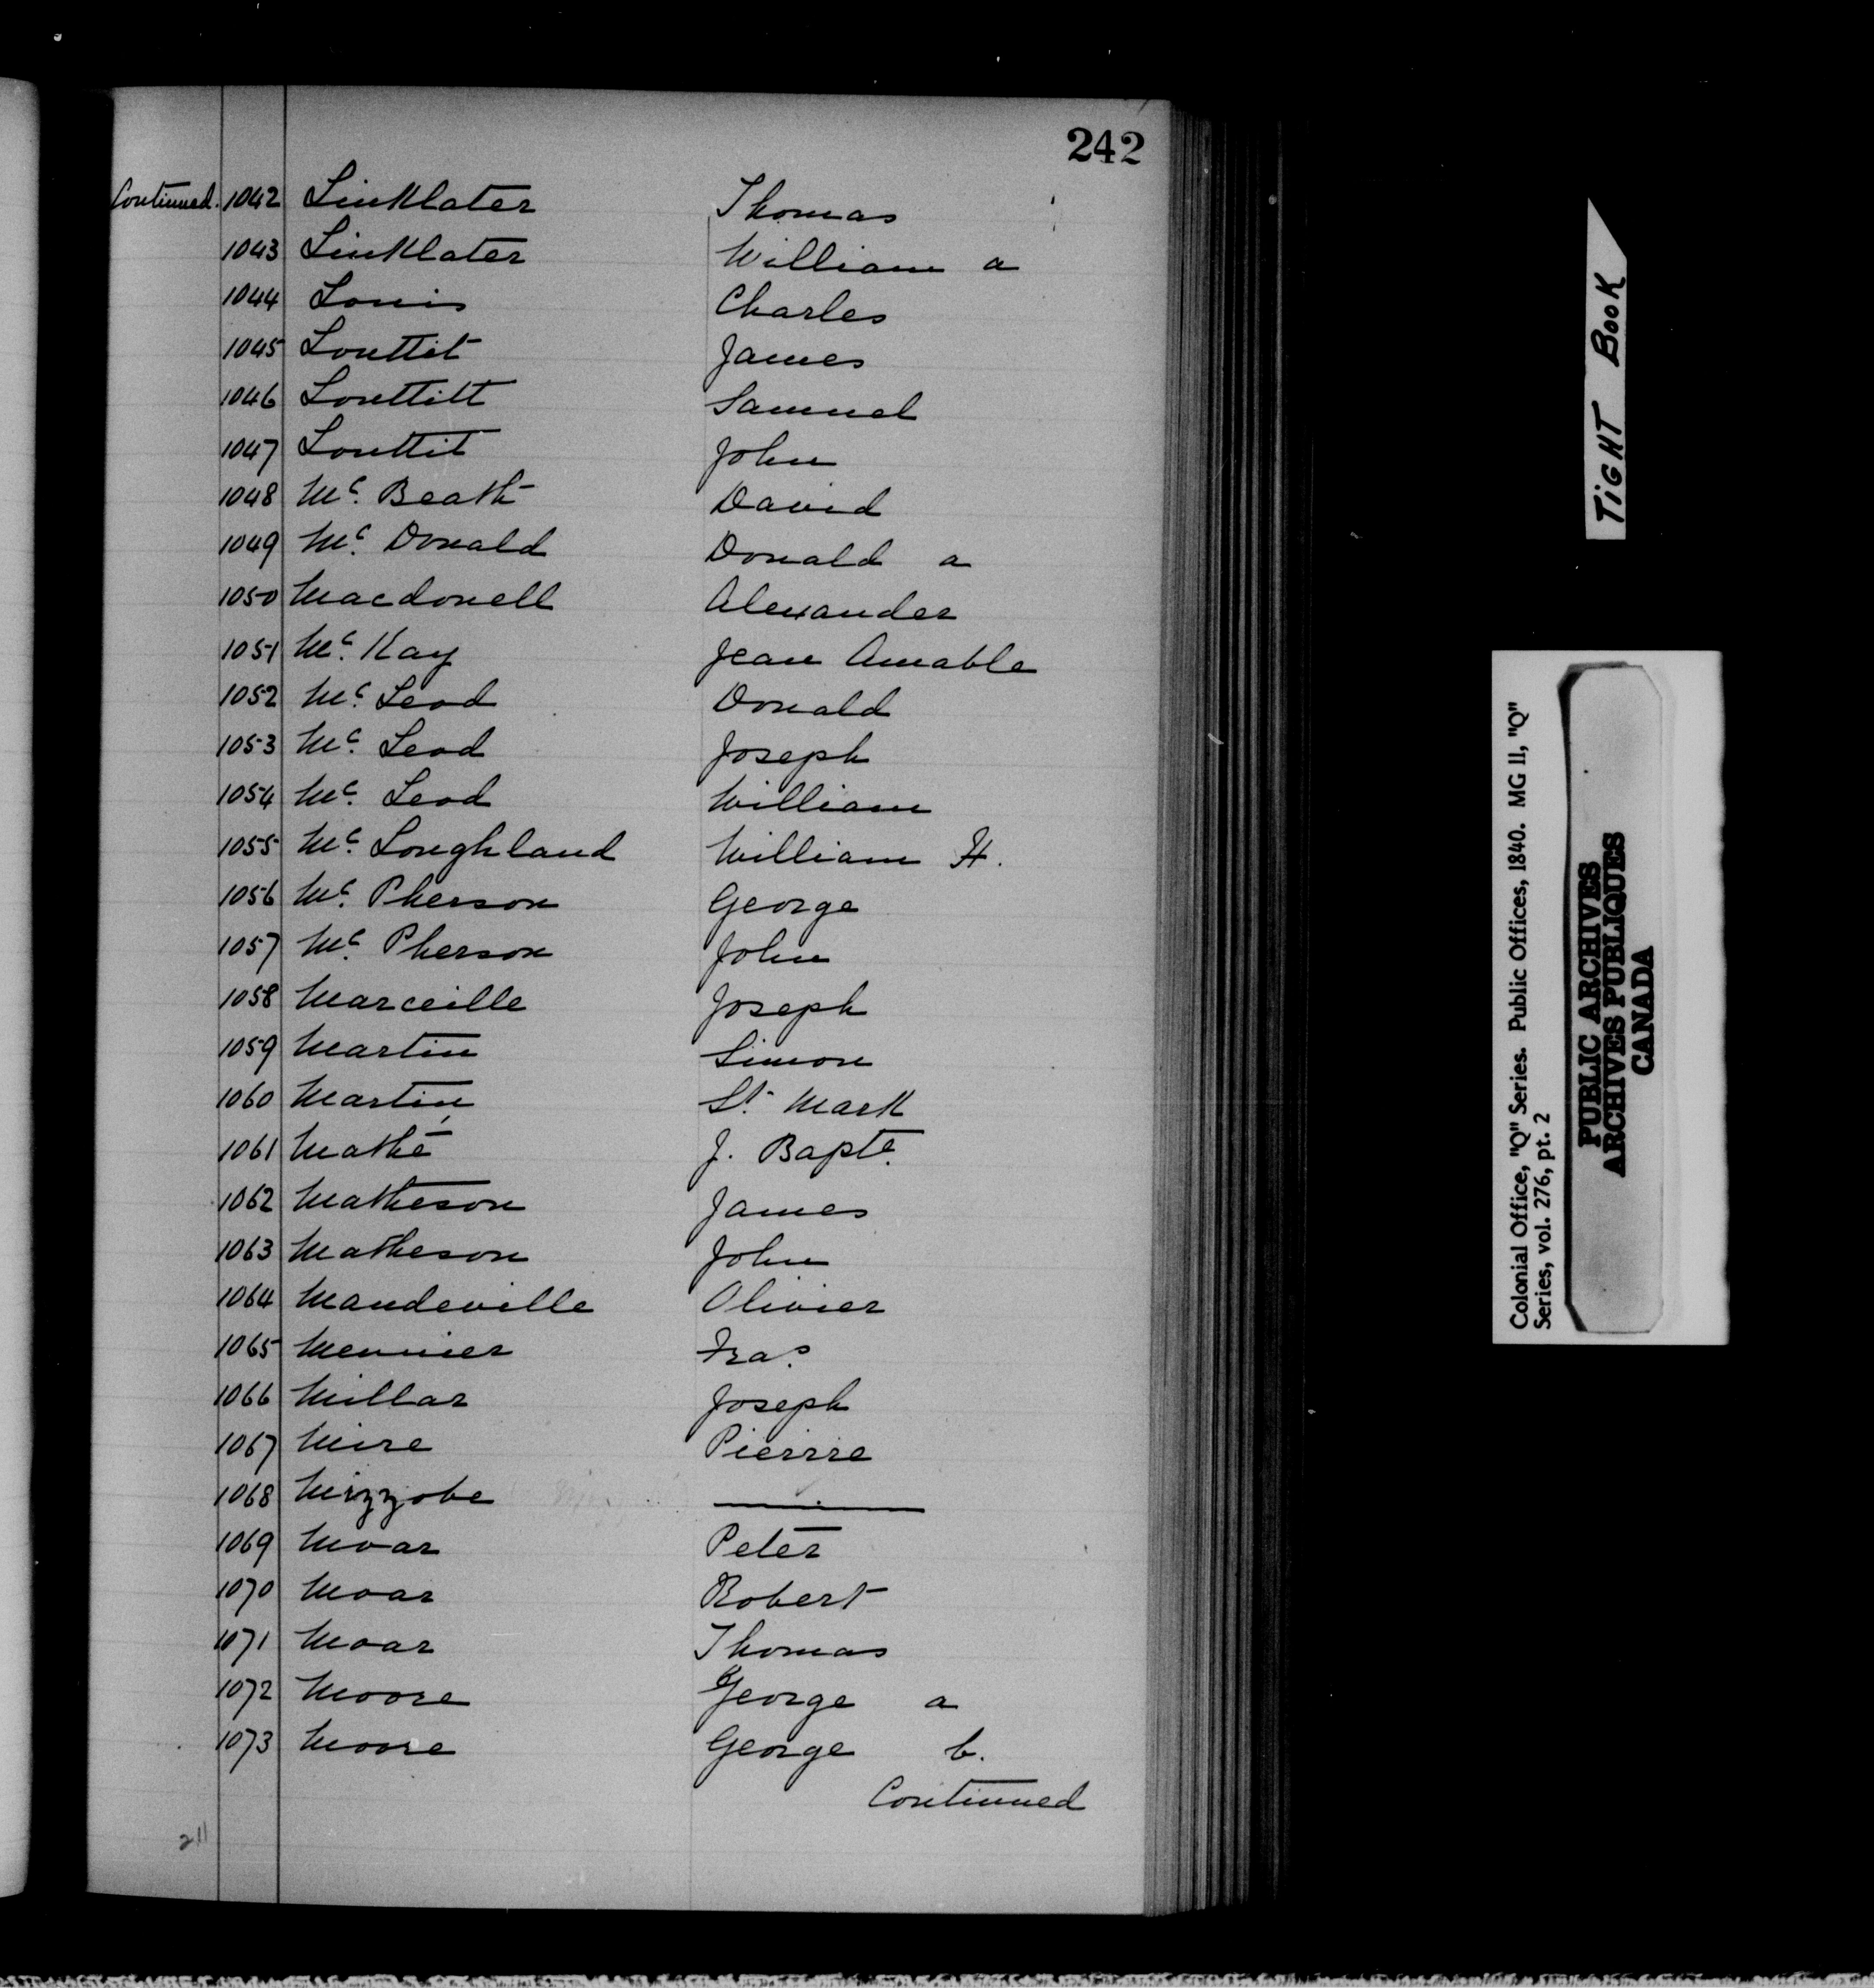 242
Continued. 1042 Linklater Thomas
1043 Linklater William a
1044 Louis Charles
1045 Louttit James
1046 Louttitt Samuel
1047 Louttit John
1048 Mc. Beath David
1049 Mc. Donald Donald a
1050 Macdonell Alexander
1051 Mc. Kay Jean Amable
1052 Mc. Leod Donald
1053 Mc. Leod Joseph
1054 Mc. Leod William
1055 Mc. Loughland William H.
1056 Mc. Pherson George
1057 Mc. Pherson John
1058 Marceille Joseph
1059 Martin Simon
1060 Martin St. Mark
1061 Mathé J. Bapte.
1062 Matheson James
1063 Matheson John
1064 Mandeville Olivier
1065 Meunier Fras.
1066 Millar Joseph
1067 Mire Pierrre
1068 Mizzobe
1069 Moar Peter
1070 Moar Robert
1071 Moar Thomas
1072 Moore George a
1073 Moore George b.
Continued
211
TiGHT BooK
Colonial Office, "Q" Series. Public Offices, 1840. MG 11, "Q"
Series, vol. 276, pt. 2
PUBLIC ARCHIVES
ARCHIVES PUBLIQUES
CANADA